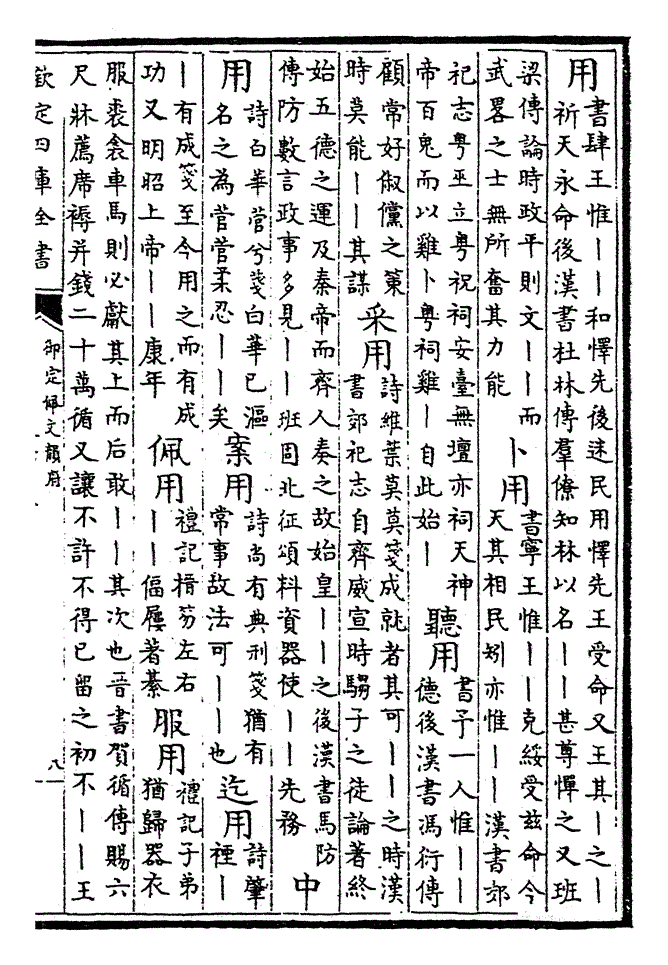 用
書肆王惟丨丨和懌先後迷民用懌先王受命又王其丨之丨
祈天永命後漢書杜林傳羣僚知林以名丨丨甚尊憚之又班
梁傳論時政平則文丨丨而
武畧之士無所奮其力能
卜用
書寧王惟丨丨克綏受兹命今
天其相民矧亦惟丨丨漢書郊
祀志粤巫立粤祝祠安臺無壇亦祠天神
帝百鬼而以雞卜粤祠雞丨自此始丨
聽用
書予一人惟丨丨
德後漢書馮衍傳
顧常好俶儻之䇿
時莫能丨丨其謀
采用
詩維葉莫莫箋成就者其可丨丨之時漢
書郊祀志自齊威宣時騶子之徒論著終
始五德之運及秦帝而齊人奏之故始皇丨丨之後漢書馬防
傳防數言政事多見丨丨班固北征頌料資器使丨丨先務
中
用
詩白華菅兮箋白華已漚
名之為菅菅柔忍丨丨矣
案用
詩尚有典刑箋猶有
常事故法可丨丨也
迄用
詩肇
禋丨
丨有成箋至今用之而有成
功又明昭上帝丨丨康年
佩用
禮記搢笏左右
丨丨偪屨著綦
服用
禮記子弟
猶歸器衣
服裘衾車馬則必獻其上而后敢丨丨其次也晉書賀循傳賜六
尺牀薦席褥并錢二十萬循又讓不許不得已留之初不丨丨王
欽定四庫全書
御定佩文韻府
八